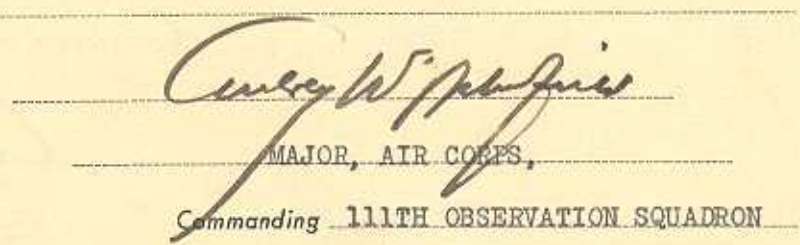 W.
MAJOR, AIR CORPS,
Commanding 111TH OBSERVATION SQUADRON